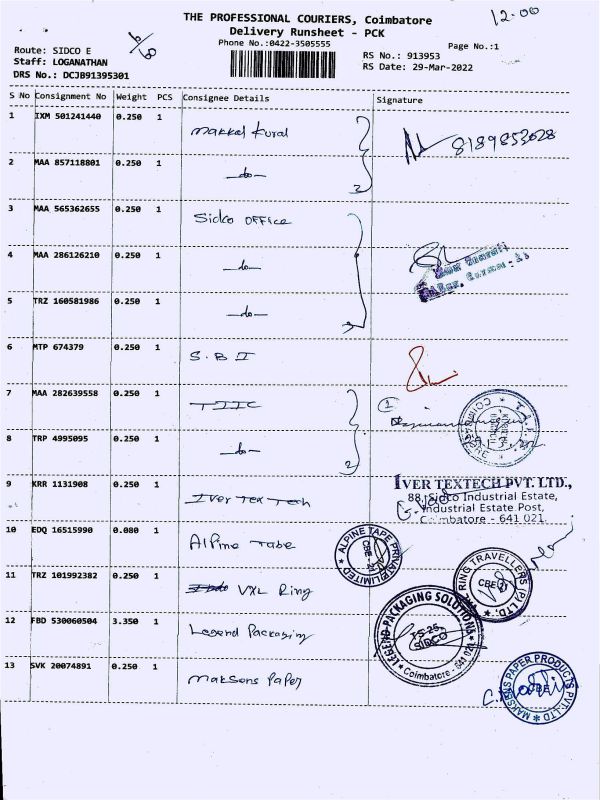 THE PROFESSIONAL COURIERS, Coimbatore
12-00
Delivery Runsheet - PCK
Phone No.:0422-3505555
Page No.:1
Route: SIDCO E
Staff: LOGANATHAN
DRS No.: DCJB91395301
RS No.: 913953
RS Date: 29-Mar-2022
S No Consignment No Weight PCS Consignee Details Signature
1 IXM 501241440 0.250 1 Makkal Kural 8189853628
2 MAA 857118801 0.250 1 -do- 2
3 MAA 565362655 0.250 1 Sidco OFFice
4 MAA 286126210 0.250 1 -do-
5 TRZ 160581986 0.250 1 -do- 3
6 MTP 674379 0.250 1 S.B.I
7 MAA 282639558 0.250 1 TIIC 1
8 TRP 4995095 0.250 1 -do- 2
COIMBATORE
9 KRR 1131908 0.250 1 Iver Tex Tech
IVER TEXTECH PVT. LTD.,
88, Sidco Industrial Estate,
Industrial Estate Post,
Coimbatore - 641 021.
10 EDQ 16515990 0.080 1 Alpine Tabe
ALPINE TAPE PRIVATE LIMITED
CBE-21
11 TRZ 101992382 0.250 1 VXL Ring
RING TRAVELLERS (P) LTD.
CBE-21
12 FBD 530060504 3.350 1 Legend Packaging
LEGEND PACKAGING SOLUTIONS
TS-25,
SIDCO
Coimbatore - 641 021
13 SVK 20074891 0.250 1 Maksons Paper
MAKSONS PAPER PRODUCTS PVT. LTD
CBE